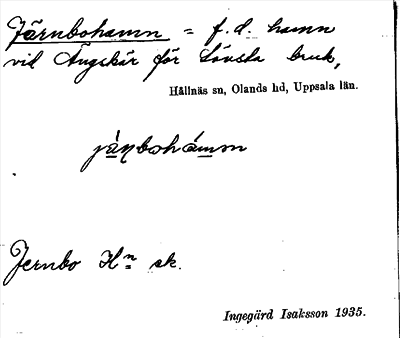 Järnbohamn = f.d. hamn
vid Ängskär för Lövsta bruk,
Hållnäs sn, Olands hd, Uppsala län.
jànbohámn
Jernbo Hn sk.
Ingegärd Isaksson 1935.